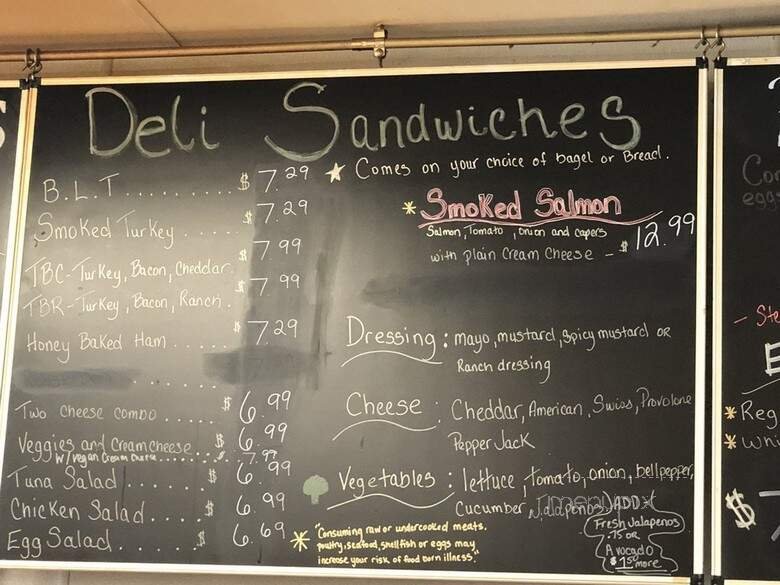 Deli Sandwiches
★ Comes on your choice of bagel or Bread.
B.L.T. ......... $ 7.29
Smoked Turkey ..... $ 7.29
TBC-Turkey, Bacon, Cheddar. $ 7.99
TBR-Turkey, Bacon, Ranch. $ 7.99
Honey Baked Ham ...... $ 7.29
Two cheese combo ..... $ 6.99
Veggies and Creamcheese $ 6.99
w/vegan Cream Cheese ........ 7.99
Tuna Salad ....... $ 6.99
Chicken Salad .... $ 6.99
Egg Salad ....... $ 6.69
* Smoked Salmon
Salmon, Tomato, Onion and capers
with plain Cream Cheese - $ 12.99
Dressing: mayo, mustard, spicy mustard or
Ranch dressing
Cheese: Cheddar, American, Swiss, Provolone
Pepper Jack
Vegetables: lettuce, tomato, onion, bellpepper,
Cucumber, Jalapenos
ADD:
Fresh Jalapenos
.75 OR
Avocado
$1.50 more
* "Consuming raw or undercooked meats,
poultry, seafood, shellfish or eggs may
increase your risk of food born illness."
Co
egg
- Ste
E
* Reg
* Whi
$7